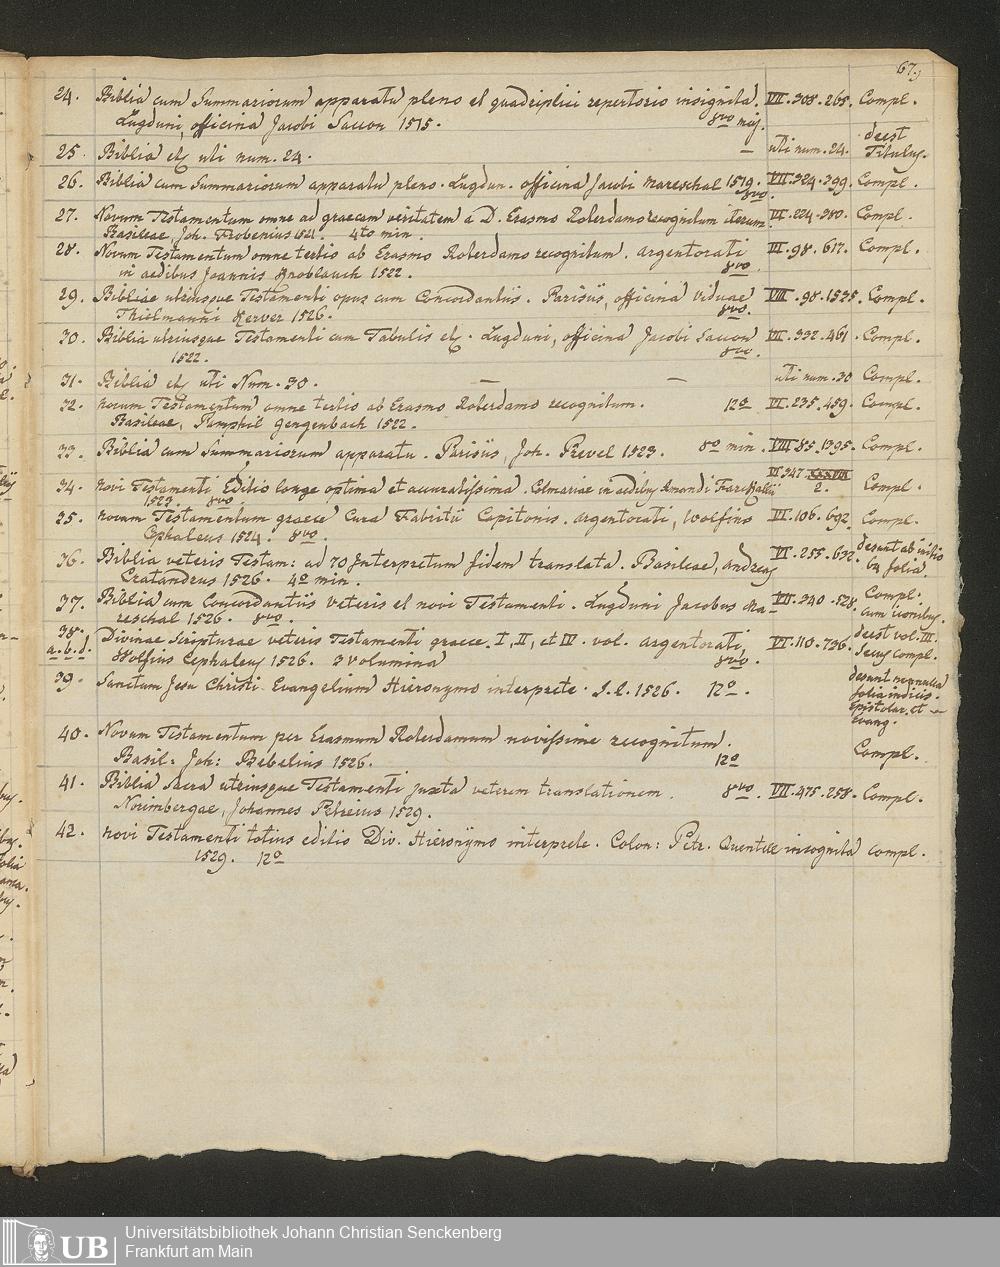 67.
24. Biblia cum Summariorum apparatu pleno et quadriplici repertorio insignita. VII. 308. 265. Compl.
Lugduni, officina Jacobi Saccon 1515. 8vo maj.
25. Biblia etc uti num. 24. — uti num. 24. deest Titulus.
26. Biblia cum Summariorum apparatu pleno. Lugdun. officina Jacobi Mareschal 1519. 8vo. VII. 324. 399. Compl.
27. Novum Testamentum omne ad graecam veritatem a D. Erasmo Roterdamo recognitum iterum. VI. 224. 380. Compl.
Basileae, Joh. Frobenius 1521. 4to min.
28. Novum Testamentum omne tertio ab Erasmo Roterdamo recognitum. argentorati VI. 98. 617. Compl.
in aedibus Joannis Knoblauch 1522. 8vo.
29. Bibliae utriusque Testamenti opus cum Concordantiis. Parisiis, officina viduae VIII. 98. 1535. Compl.
Thielmanni Kerver 1526. 8vo.
30. Biblia utriusque Testamenti cum Tabulis etc. Lugduni, officina Jacobi Saccon VII. 332. 461. Compl.
1522. 8vo.
31. Biblia etc uti Num. 30. — — uti num. 30 Compl.
32. novum Testamentum omne tertio ab Erasmo Roterdamo recognitum. 12o VI. 235. 459. Compl.
Basileae, Pamphil Gengenbach 1522.
33. Biblia cum Summariorum apparatu. Parisiis, Joh. Prevel 1523. 8o min. VIII. 85. 1395. Compl.
34. novi Testamenti Editio longe optima et accuratissima. Colmariae in aedibus Amandi Farckallii VI. 347. 2. Compl.
1523. 8vo
35. novum Testamentum graece Cura Fabritii Capitonis. argentorati, Wolfius VI. 106. 692. Compl.
Cephaleus 1524. 8vo.
36. Biblia veteris Testam: ad 70 Interpretum fidem translata. Basileae, Andreas VI. 255. 632. desunt ab initio
Cratandrus 1526. 4o min. 64 folia.
37. Biblia cum Concordantiis veteris et novi Testamenti. Lugduni Jacobus Ma- VII. 340. 528. Compl.
reschal 1526. 8vo. cum iconibus.
38. a. b. d. Divinae Scripturae veteris Testamenti graece. I, II, et IV. vol. argentorati, VI. 110. 736. deest vol. III.
Wolfius Cephaleus 1526. 3 volumina 8vo. Secus compl.
39. Sanctum Jesu Christi Evangelium Hieronymo interprete. S. l. 1526. 12o. desunt nonnulla
folia indicis.
Epistolar. et
Evang.
40. Novum Testamentum per Erasmum Roterdamum novissime recognitum.
Basil: Joh: Bebelius 1526. 12o Compl.
41. Biblia Sacra utriusque Testamenti juxta veterem translationem. 8vo. VII. 475. 258. Compl.
Norimbergae, Johannes Petreius 1529.
42. novi Testamenti totius editio Div. Hieronymo interprete. Colon: Petr. Quentell incognita compl.
1529. 12o
UB
Universitätsbibliothek Johann Christian Senckenberg
Frankfurt am Main